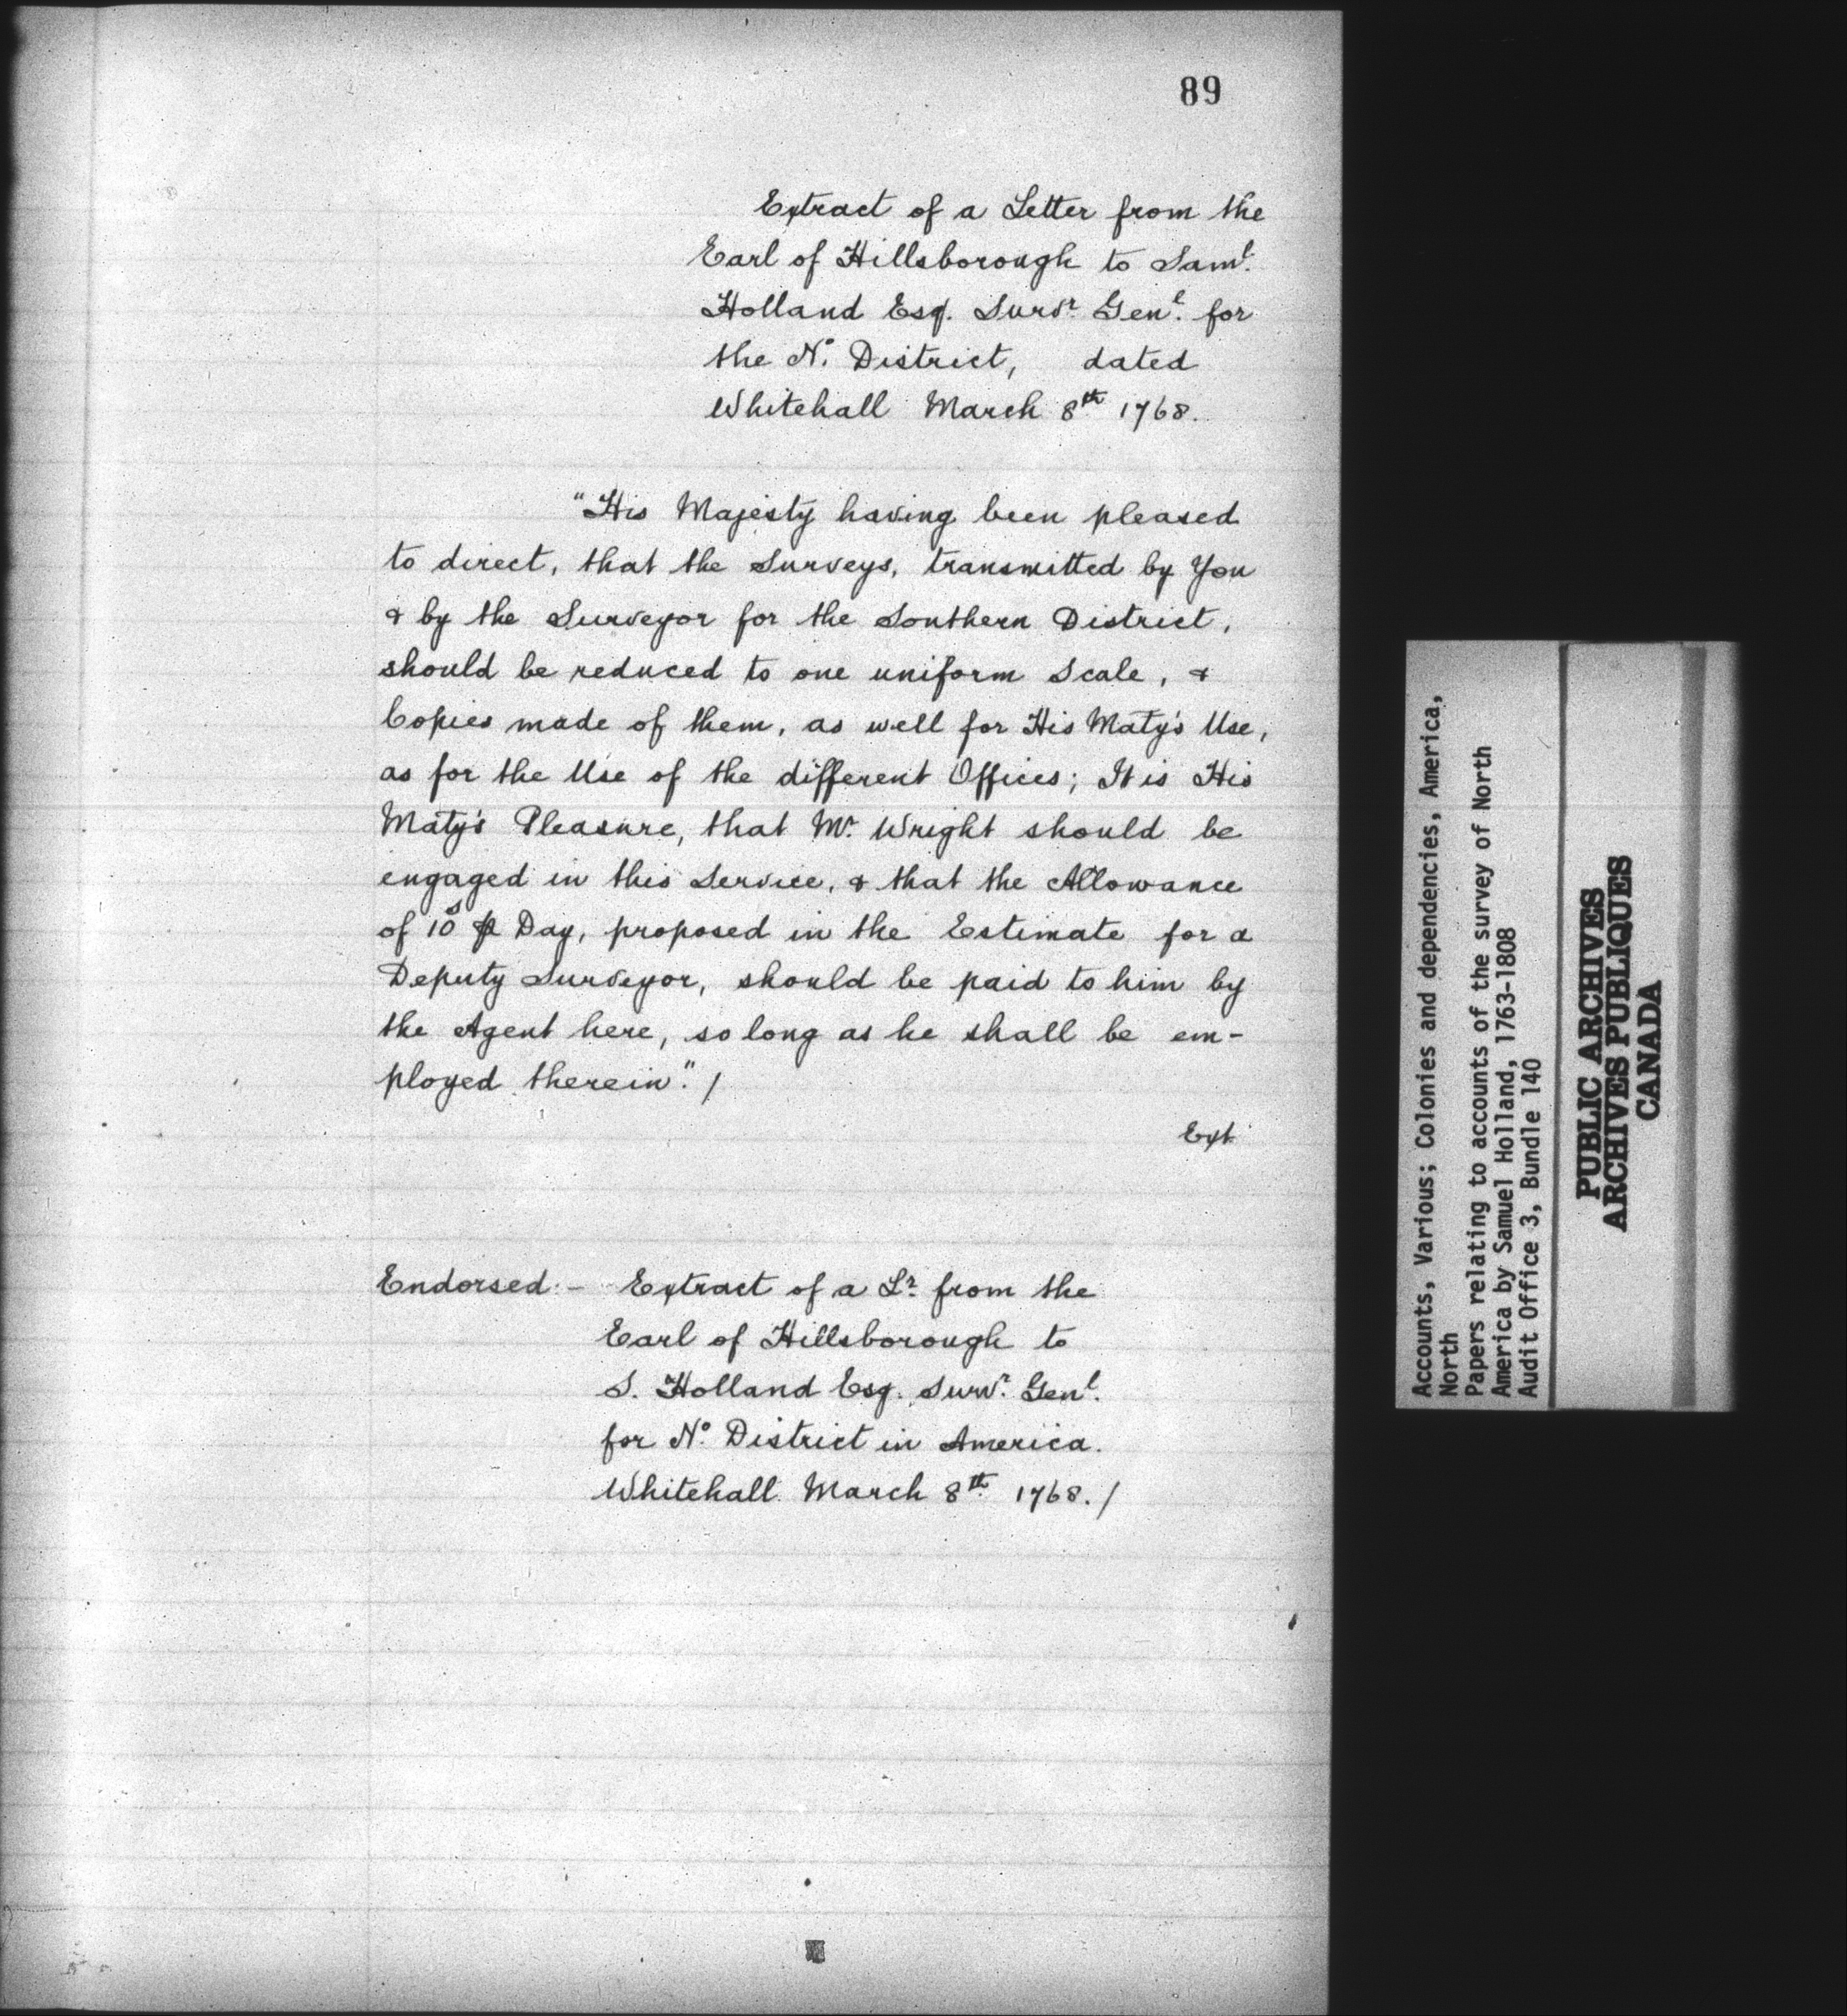 89
Extract of a Letter from the
Earl of Hillsborough to Saml.
Holland Esq. Survr. Genl. for
the No. District, dated
Whitehall March 8th 1768.
"His Majesty having been pleased
to direct, that the Surveys, transmitted by You
& by the Surveyor for the Southern District,
should be reduced to one uniform Scale, &
Copies made of them, as well for His Maty's Use,
as for the Use of the different Offices; It is His
Maty's Pleasure, that Mr. Wright should be
engaged in this Service, & that the Allowance
of 10s ⅌ Day, proposed in the Estimate for a
Deputy Surveyor, should be paid to him by
the Agent here, so long as he shall be em-
ployed therein". /
Ext
Endorsed:- Extract of a Lr. from the
Earl of Hillsborough to
S. Holland Esq. Survr. Genl.
for No. District in America.
Whitehall March 8th 1768. /
Accounts, Various; Colonies and dependencies, America,
North
Papers relating to accounts of the survey of North
America by Samuel Holland, 1763-1808
Audit Office 3, Bundle 140
PUBLIC ARCHIVES
ARCHIVES PUBLIQUES
CANADA